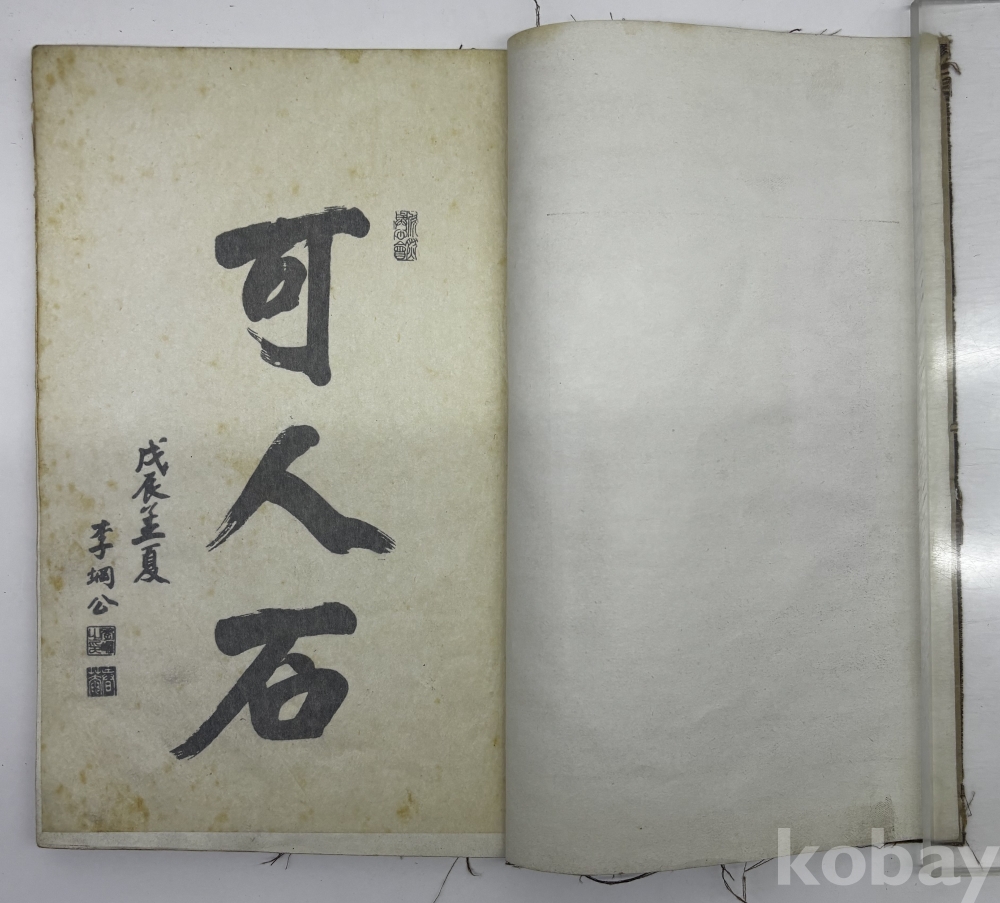 可人石
戊辰孟夏
李堈公
kobay